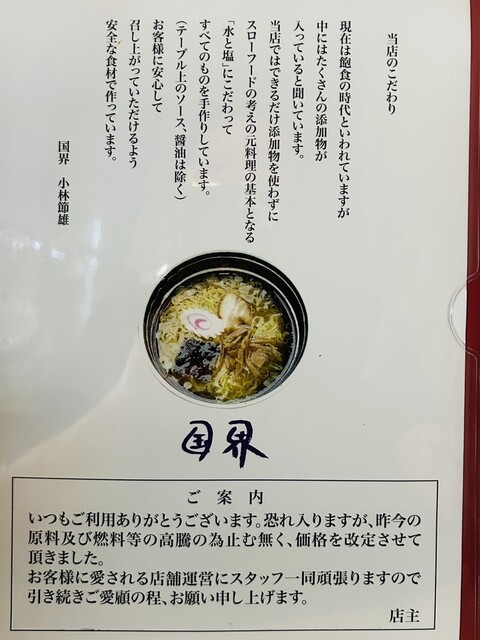 当店のこだわり
現在は飽食の時代といわれていますが
中にはたくさんの添加物が
入っていると聞いています。
当店ではできるだけ添加物を使わずに
スローフードの考えの元料理の基本となる
「水と塩」にこだわって
すべてのものを手作りしています。
(テーブル上のソース、醤油は除く)
お客様に安心して
召し上がっていただけるよう
安全な食材で作っています。
国界 小林節雄
国界
ご案内
いつもご利用ありがとうございます。恐れ入りますが、昨今の
原料及び燃料等の高騰の為止む無く、価格を改定させて
頂きました。
お客様に愛される店舗運営にスタッフ一同頑張りますので
引き続きご愛顧の程、お願い申し上げます。
店主